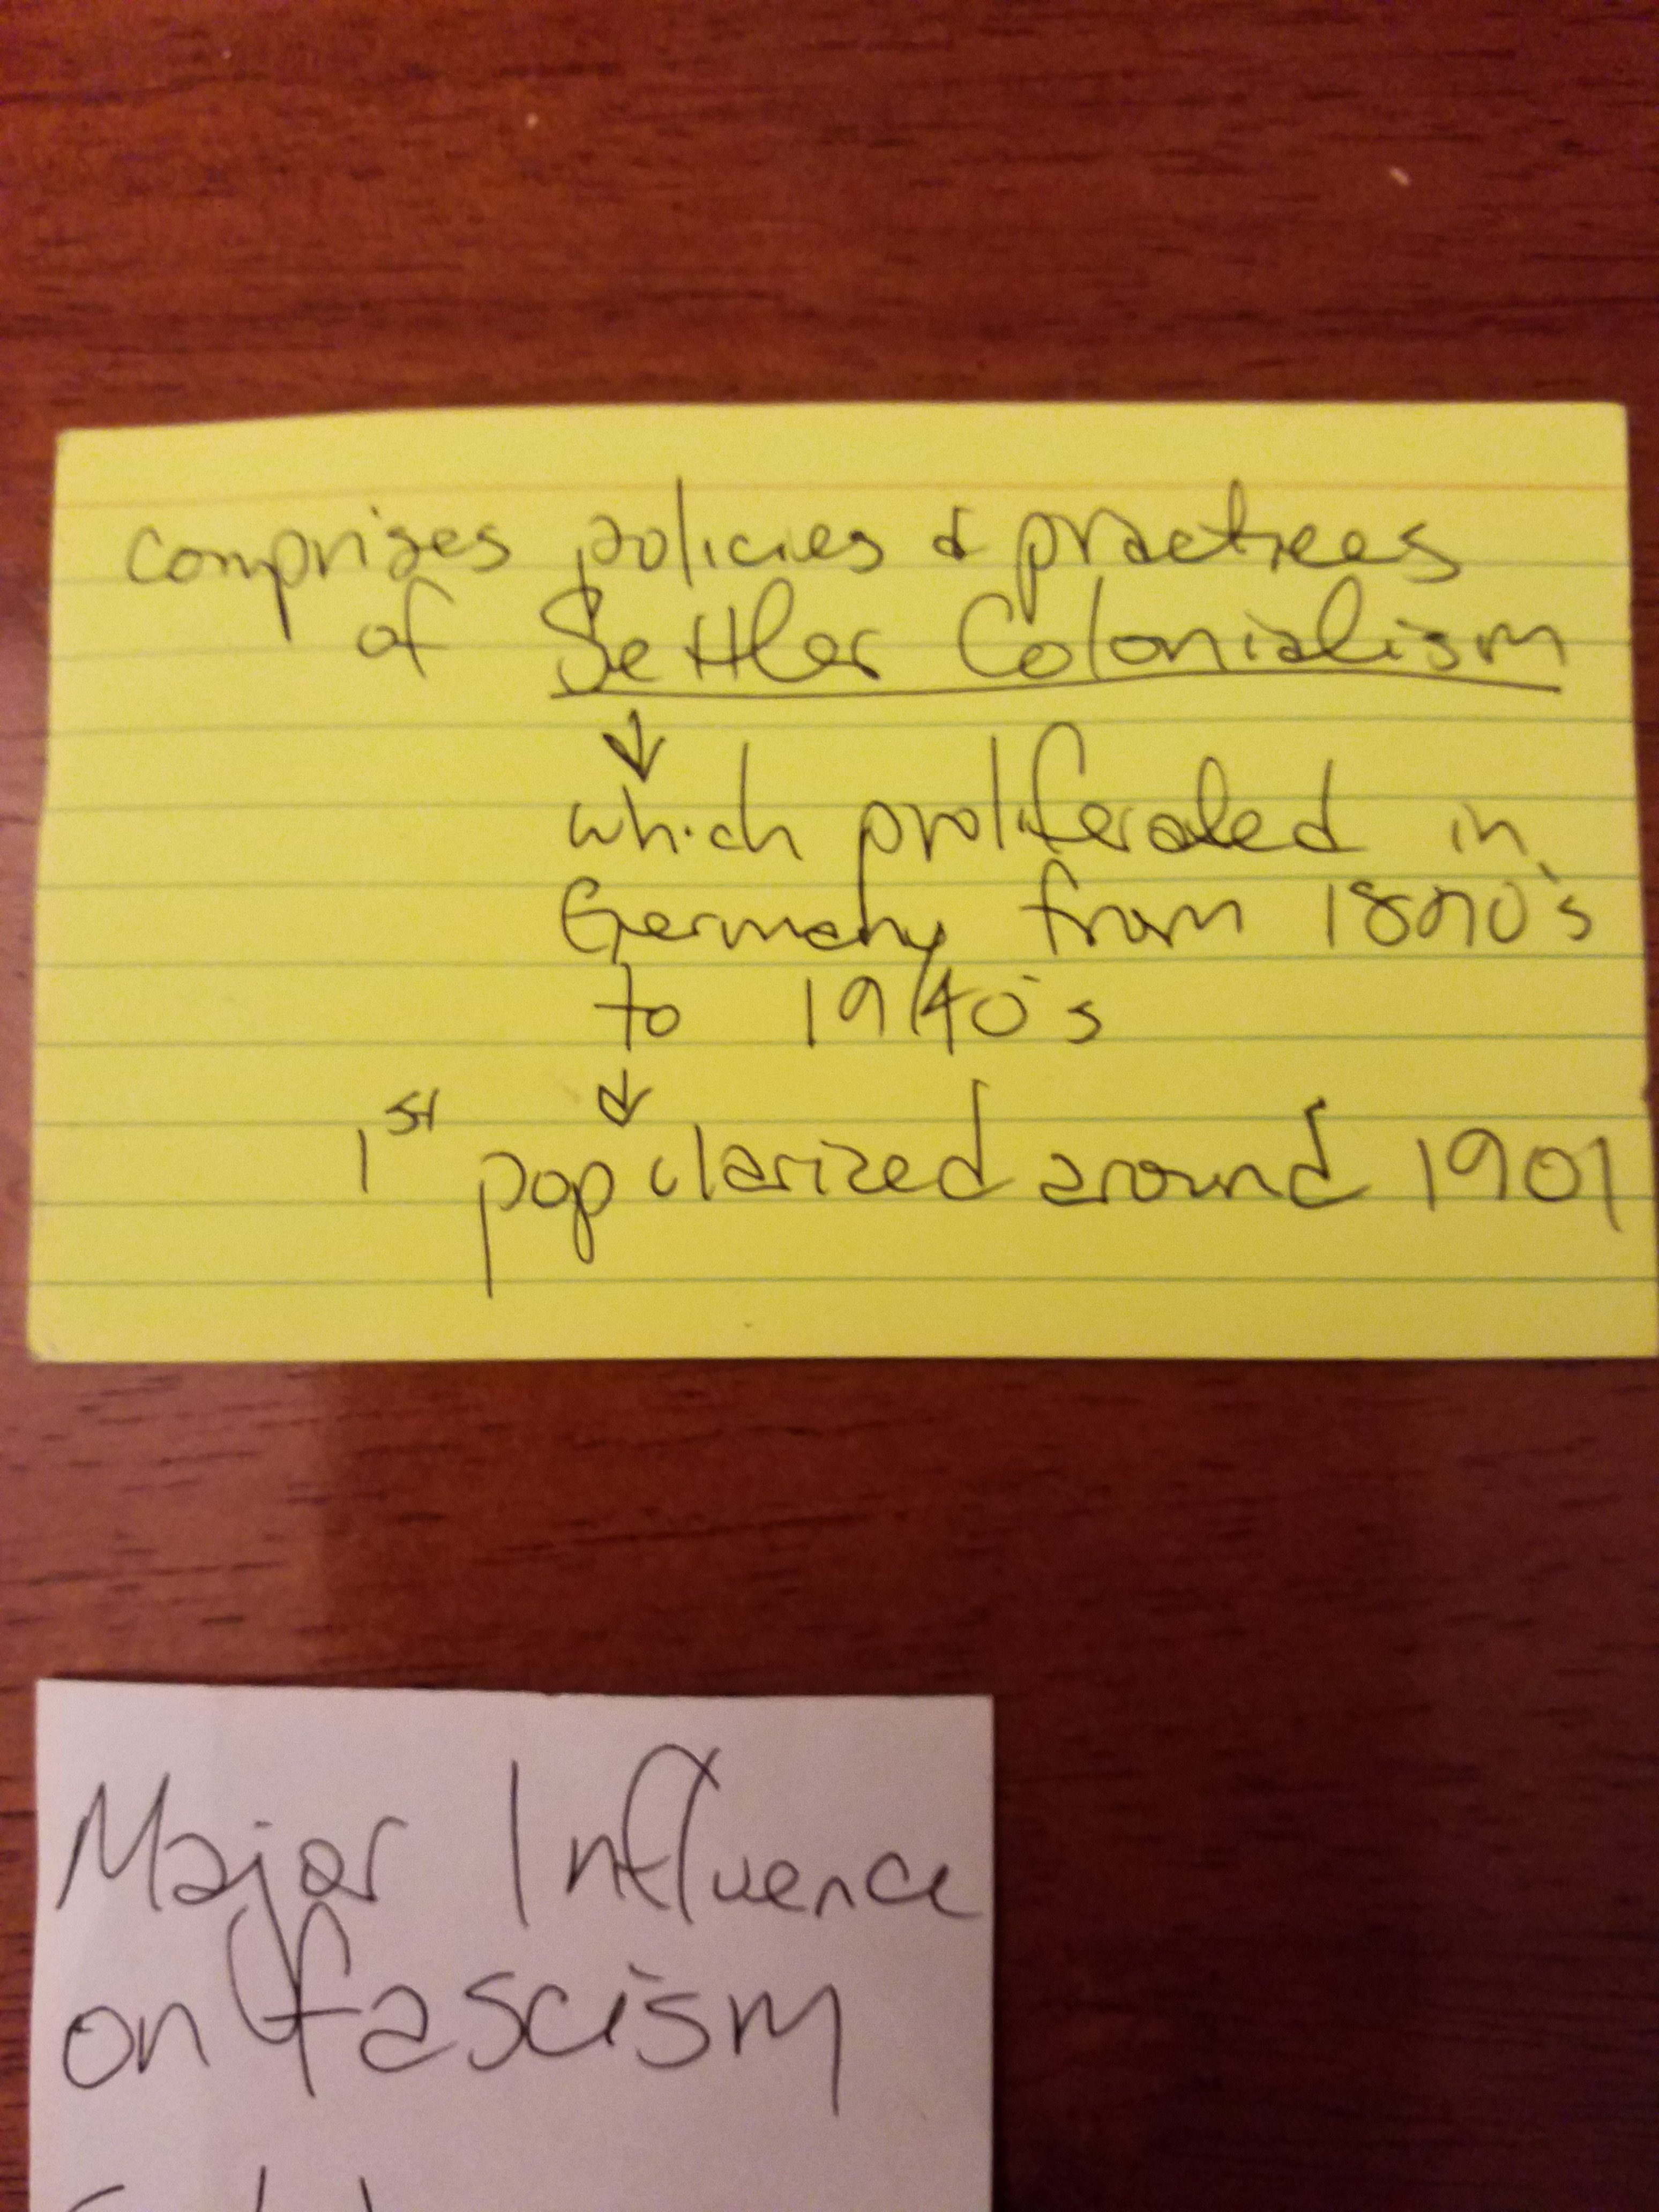 comprises policies & practices
of Settler Colonialism
↓
which proliferated in
Germany from 1890's
to 1940's
↓
1st popularized around 1901
Major Influence
on fascism